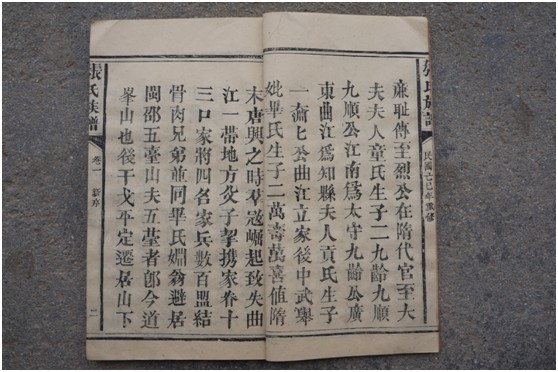 張氏族譜
民國己巳年重修
廉耻傳至烈公在隋代官至大
夫夫人童氏生子二九齡九順
九順公江南爲太守九齡公廣
東曲江爲知縣夫人貢氏生子
一齋七公曲江立家後中武舉
妣畢氏生子二萬壽萬善值隋
末唐興之時羣寇崛起致失曲
江一帶地方父子挈携家眷十
三口家將四名家兵數百盟結
骨肉兄弟並同畢氏婣翁避居
閩邵五臺山夫五臺者即今道
峯山也後干戈平定遷居山下
張氏族譜
卷一 新序
二